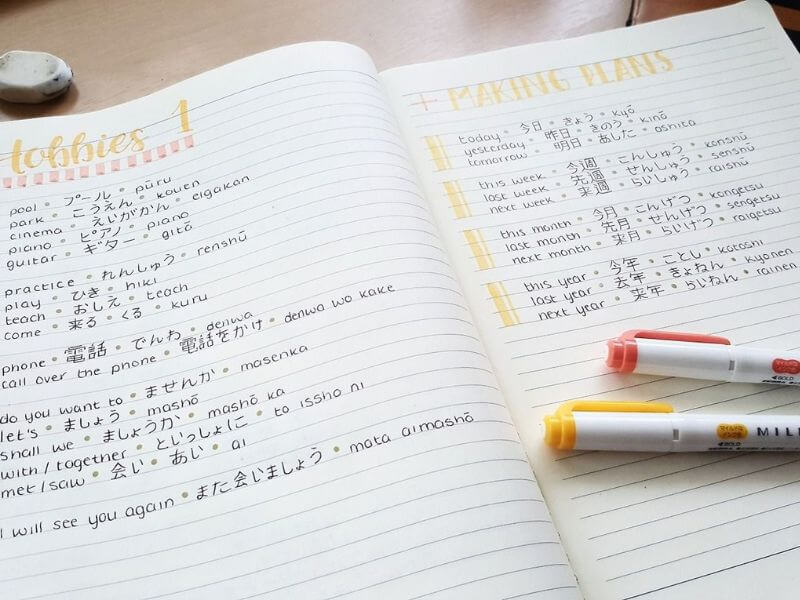 Hobbies 1
pool • プール • pūru
park • こうえん • kouen
cinema • えいががん • eigakan
piano • ピアノ • piano
guitar • ギター • gitā
practice • れんしゅう • renshū
play • ひき • hiki
teach • おしえ • teach
come • 来る • くる • kuru
phone • 電話 • でんわ • denwa
call over the phone • 電話をかけ • denwa wo kake
do you want to • ませんか • masenka
let's • ましょう • mashō
shall we • ましょうか • mashō ka
with/together • といっしょに • to issho ni
met/saw • 会い • あい • ai
I will see you again • また会いましょう • mata aimashō
+ MAKING PLANS
today • 今日 • きょう • kyō
yesterday • 昨日 • きのう • kinō
tomorrow • 明日 • あした • ashita
this week • 今週 • こんしゅう • konshū
last week • 先週 • せんしゅう • senshū
next week • 来週 • らいしゅう • raishū
this month • 今月 • こんげつ • kongetsu
last month • 先月 • せんげつ • sengetsu
next month • 来月 • らいげつ • raigetsu
this year • 今年 • ことし • kotoshi
last year • 去年 • きょねん • kyonen
next year • 来年 • らいねん • rainen
BOLD
MIL
BOLD